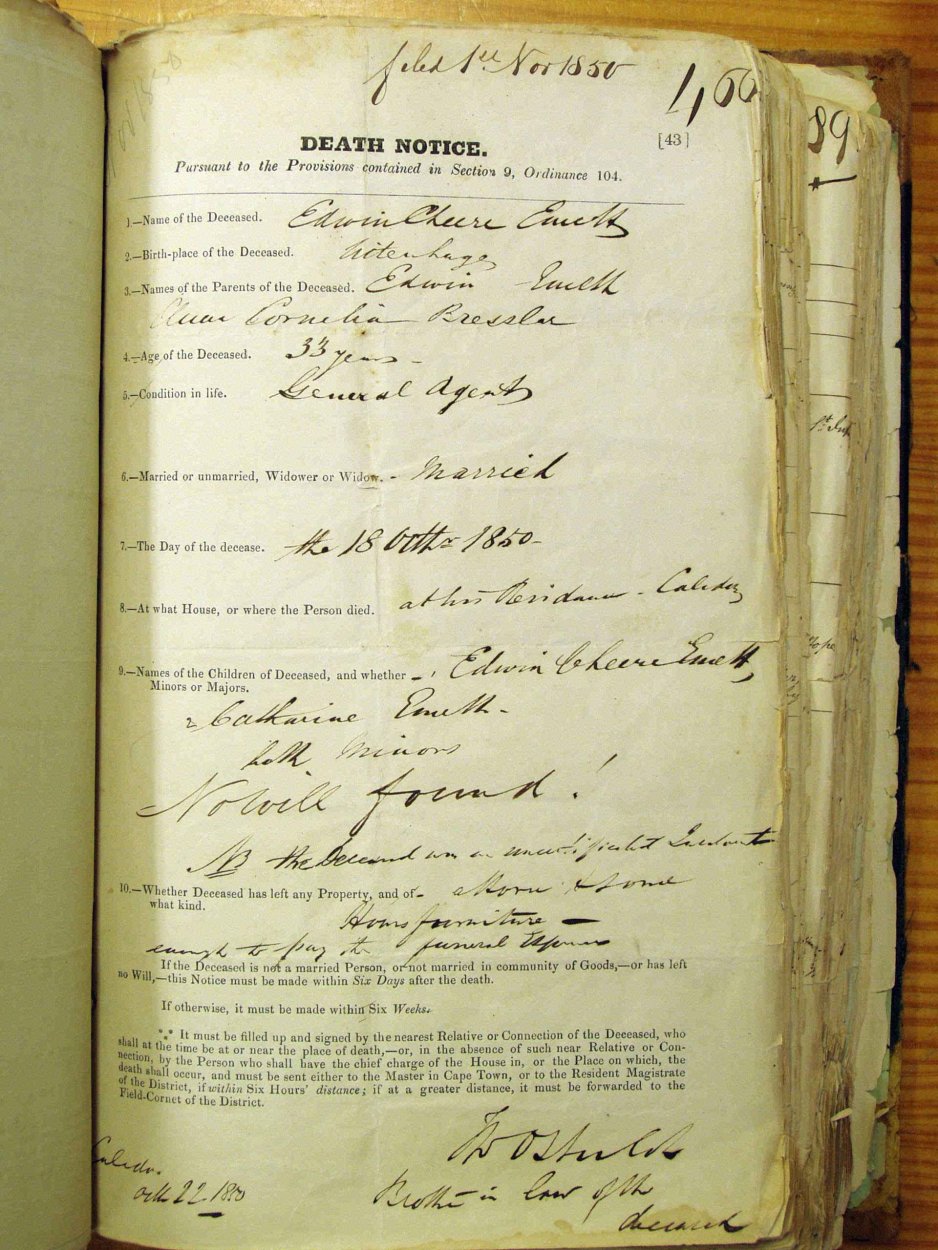 filed 1st Nov 1850
[43]
DEATH NOTICE.
Pursuant to the Provisions contained in Section 9, Ordinance 104.
1.—Name of the Deceased. Edwin Cheere Emett
2.—Birth-place of the Deceased. Uitenhage
3.—Names of the Parents of the Deceased. Edwin Emett
Anna Cornelia Bresslar
4.—Age of the Deceased. 33 years -
5.—Condition in life. General Agent
6.—Married or unmarried, Widower or Widow. - Married
7.—The Day of the decease. the 18 Octbr 1850 -
8.—At what House, or where the Person died. at his Residance - Caledon
9.—Names of the Children of Deceased, and whether - 1 Edwin Cheere Emett
Minors or Majors.
2 Catharine Emett -
both Minors
No will found!
NB the Deceased was an
10.—Whether Deceased has left any Property, and of - a Horse & some
what kind.
Hous furniture —
enough to pay the funeral Expences
If the Deceased is not a married Person, or not married in community of Goods,—or has left
no Will,—this Notice must be made within Six Days after the death.
If otherwise, it must be made within Six Weeks.
*** It must be filled up and signed by the nearest Relative or Connection of the Deceased, who
shall at the time be at or near the place of death,—or, in the absence of such near Relative or Con-
nection, by the Person who shall have the chief charge of the House in, or the Place on which, the
death shall occur, and must be sent either to the Master in Cape Town, or to the Resident Magistrate
of the District, if within Six Hours' distance; if at a greater distance, it must be forwarded to the
Field-Cornet of the District.
Caledon
Octb 22 1850
Brother in law of the
deceased
89